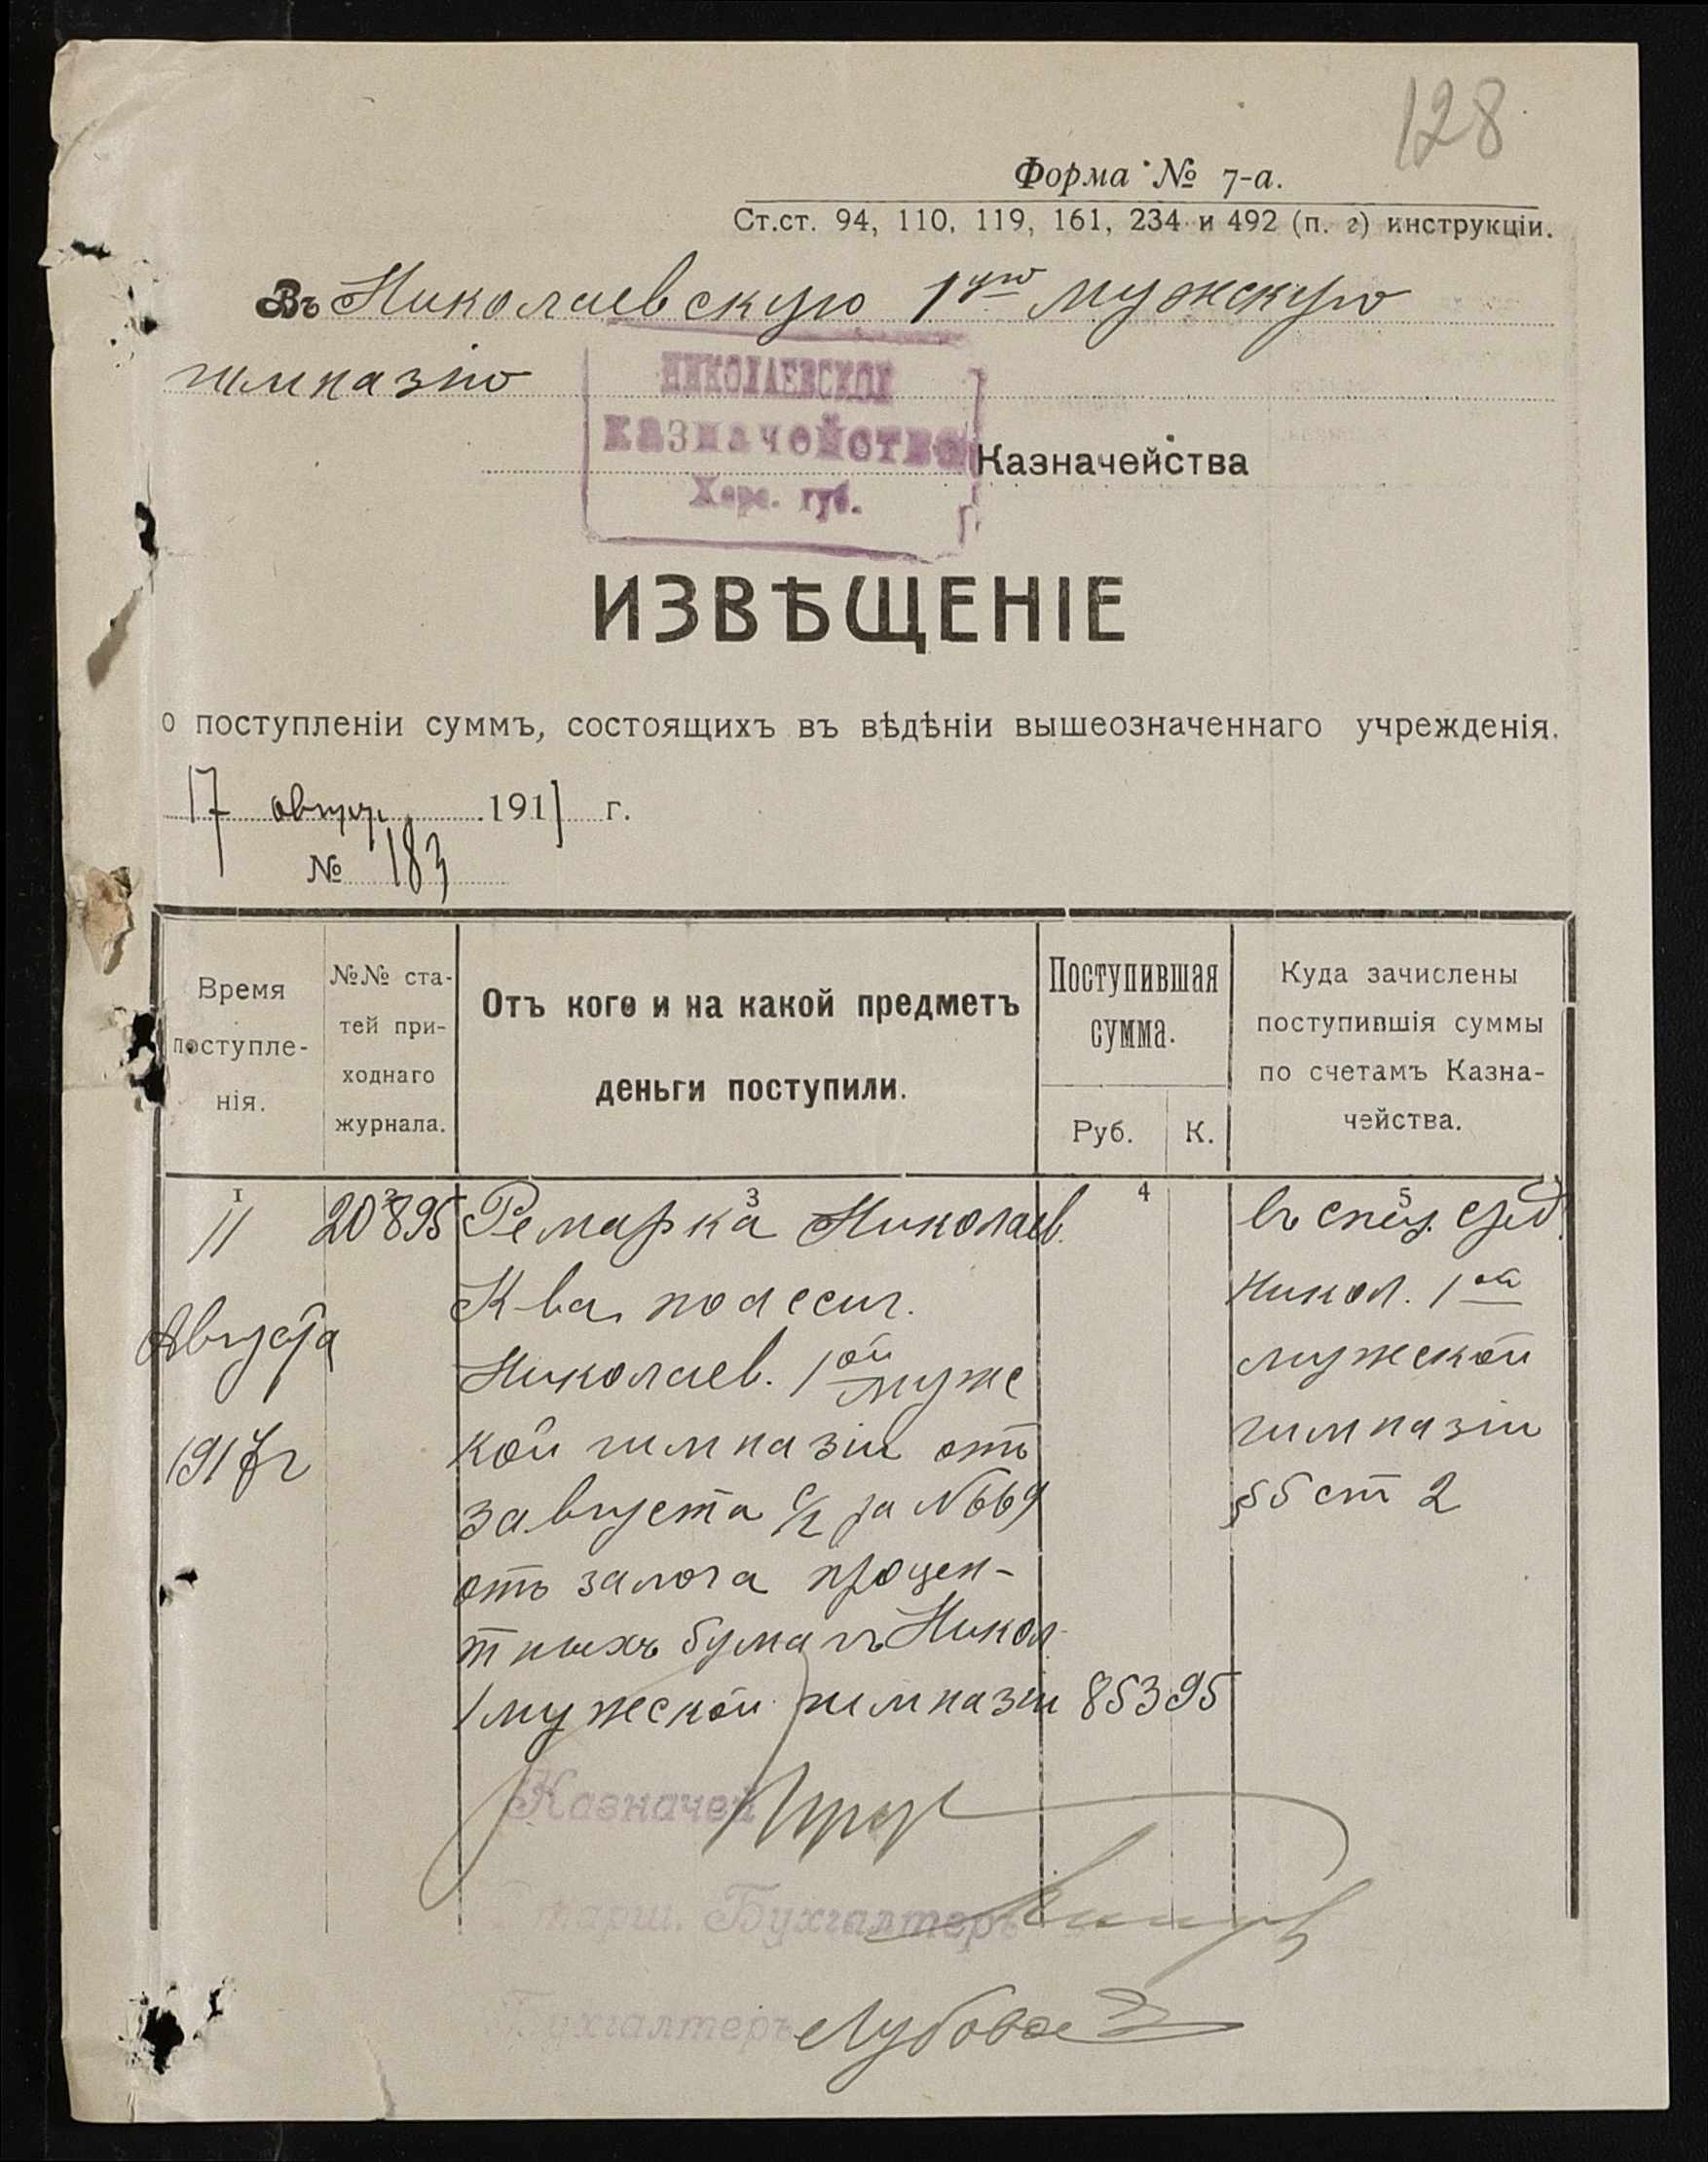 128
Форма № 7-а.
Ст.ст. 94, 110, 119, 161, 234 и 492 (п. г) инструкціи.
Въ Николаевскую 1ую мужскую
гимназію
НИКОЛАЕВСКОЕ
Казначейство
Херс. губ.
Казначейства
ИЗВѢЩЕНІЕ
о поступленіи суммъ, состоящихъ въ вѣдѣніи вышеозначеннаго учрежденія.
17 август 1917 г.
№ 183
Время поступле-нія.
№№ ста-тей при-ходнаго журнала.
Отъ кого и на какой предметъ
деньги поступили.
Поступившая
сумма.
Руб. К.
Куда зачислены
поступившія суммы
по счетамъ Казна-
чейства.
1 2 3 4 5
11 20895 Николаев. въ спец. сред.
Августа
1917 г
К-ва по ассиг.
Николаев. 1ой мужс
кой гимназіи отъ
3 августа с/г за N 669
отъ залога процен-
тныхъ бумагъ Никол
1 мужской гимназіи 853 95
Никол. 1ой
мужской
гимназіи
§ 5 ст 2
Казначей
Старш. Бухгалтеръ
Бухгалтеръ